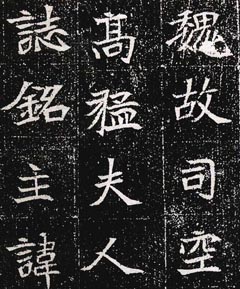 魏故司空
髙猛夫人
誌銘主諱